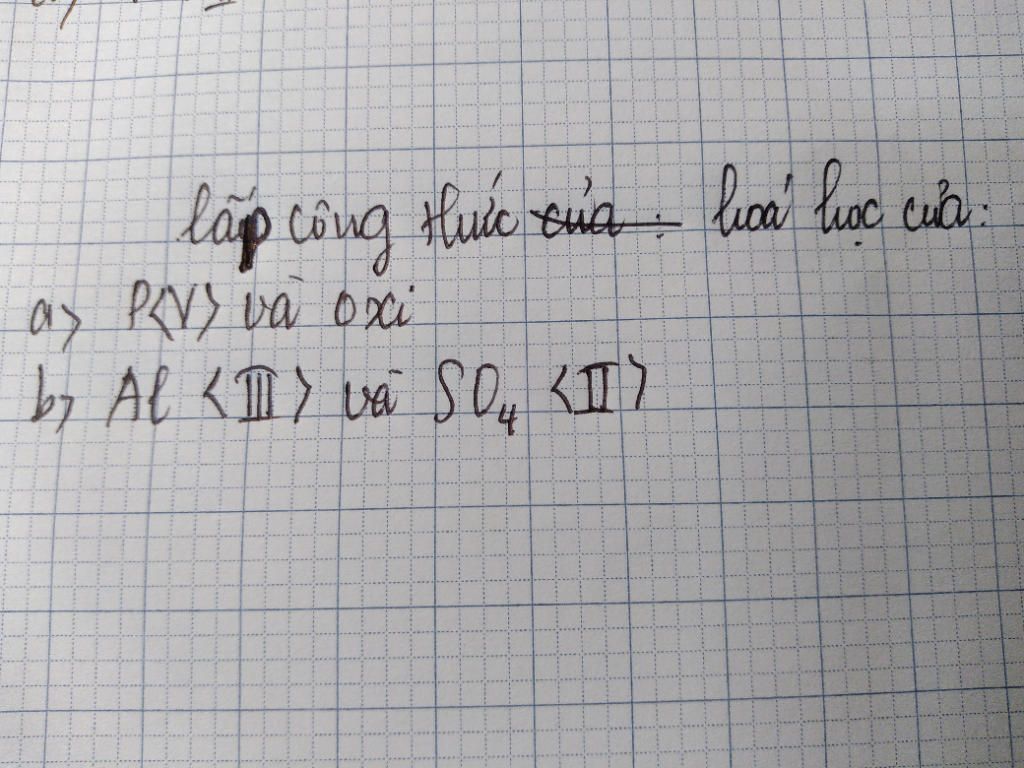 lấp công thức của : hoá học của:
a> P<V> và oxi
b> Al <III> và SO₄ <II>